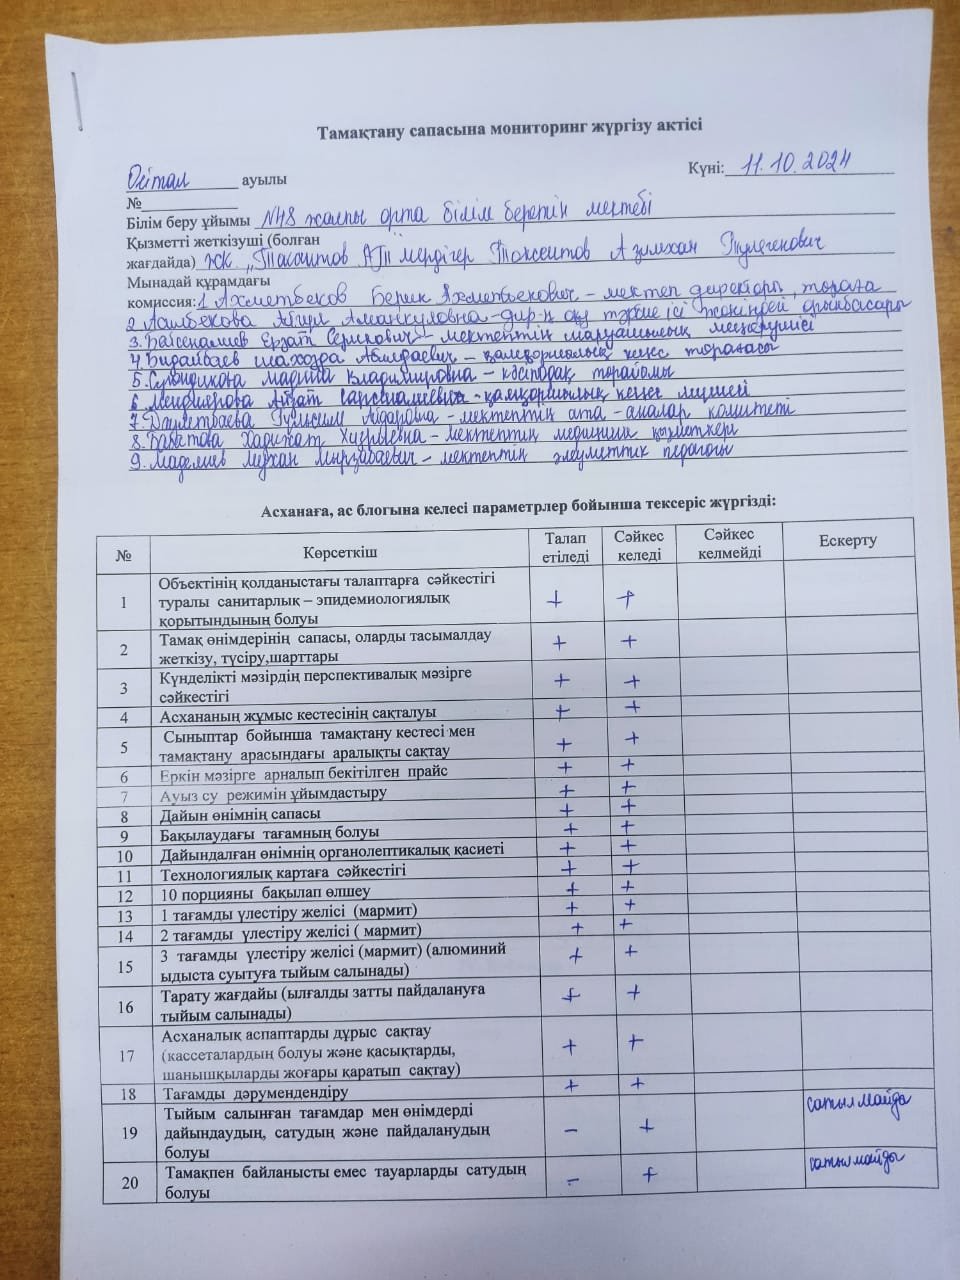 Тамақтану сапасына мониторинг жүргізу актісі
Өсітал ауылы Күні: 11.10.2024
№
Білім беру ұйымы №48 жалпы орта білім беретін мектебі
Қызметті жеткізуші (болған
жағдайда) ЖК „Токсеитов А.Т" мердігер Токсеитов Азимхан Тулегенович
Мынадай құрамдағы
комиссия: 1 Ахметбеков Берик Ахметбекович – мектеп директоры, төраға
2. Айгул Аманкуловна – дир-ң оқу тәрбие ісі жөніндей орынбасары
3. Байсеналиев Ерзат Серикович – мектептің шаруашылық меңгерушісі
4. Бидайбаев Абилдаевич – қамқоршылық кеңес төрағасы
5. Мадина Владимировна – кәсіподақ төрайымы
6 Айзат – қамқоршылық кеңес мүшесі
7. Даулетбаева Гулсим Айдаровна – мектептің ата-аналар комитеті
8. Бабатова Хадижат – мектептің медицина қызметкері
9. Маделиев Мухан Мырзабаевич – мектептің әлеуметтік педагогы
Асханаға, ас блогына келесі параметрлер бойынша тексеріс жүргізді:
№ Көрсеткіш Талап етіледі Сәйкес келеді Сәйкес келмейді Ескерту
1 Объектінің қолданыстағы талаптарға сәйкестігі
туралы санитарлық – эпидемиологиялық + +
қорытындының болуы
2 Тамақ өнімдерінің сапасы, оларды тасымалдау + +
жеткізу, түсіру,шарттары
3 Күнделікті мәзірдің перспективалық мәзірге + +
сәйкестігі
4 Асхананың жұмыс кестесінің сақталуы + +
5 Сыныптар бойынша тамақтану кестесі мен + +
тамақтану арасындағы аралықты сақтау
6 Еркін мәзірге арналып бекітілген прайс + +
7 Ауыз су режимін ұйымдастыру + +
8 Дайын өнімнің сапасы + +
9 Бақылаудағы тағамның болуы + +
10 Дайындалған өнімнің органолептикалық қасиеті + +
11 Технологиялық картаға сәйкестігі + +
12 10 порцияны бақылап өлшеу + +
13 1 тағамды үлестіру желісі (мармит) + +
14 2 тағамды үлестіру желісі ( мармит) + +
15 3 тағамды үлестіру желісі (мармит) (алюминий + +
ыдыста суытуға тыйым салынады)
16 Тарату жағдайы (ылғалды затты пайдалануға + +
тыйым салынады)
17 Асханалық аспаптарды дұрыс сақтау
(кассеталардың болуы және қасықтарды, + +
шанышқыларды жоғары қаратып сақтау)
18 Тағамды дәрумендендіру + +
19 Тыйым салынған тағамдар мен өнімдерді сатылмайды
дайындаудың, сатудың және пайдаланудың – +
болуы
20 Тамақпен байланысты емес тауарларды сатудың – + сатылмайды
болуы